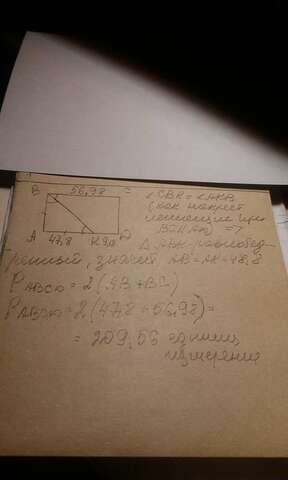 B 56,98 C
∠CBK = ∠AKB
(как накрест
лежащие при
BC∥AD) =>
A 47,8 K D
Δ ABK - равнобед-
ренный, значит AB = AK = 47,8
P ABCD = 2(AB + BC)
P ABCD = 2(47,8 + 56,98) =
= 209,56 единиц
измерения